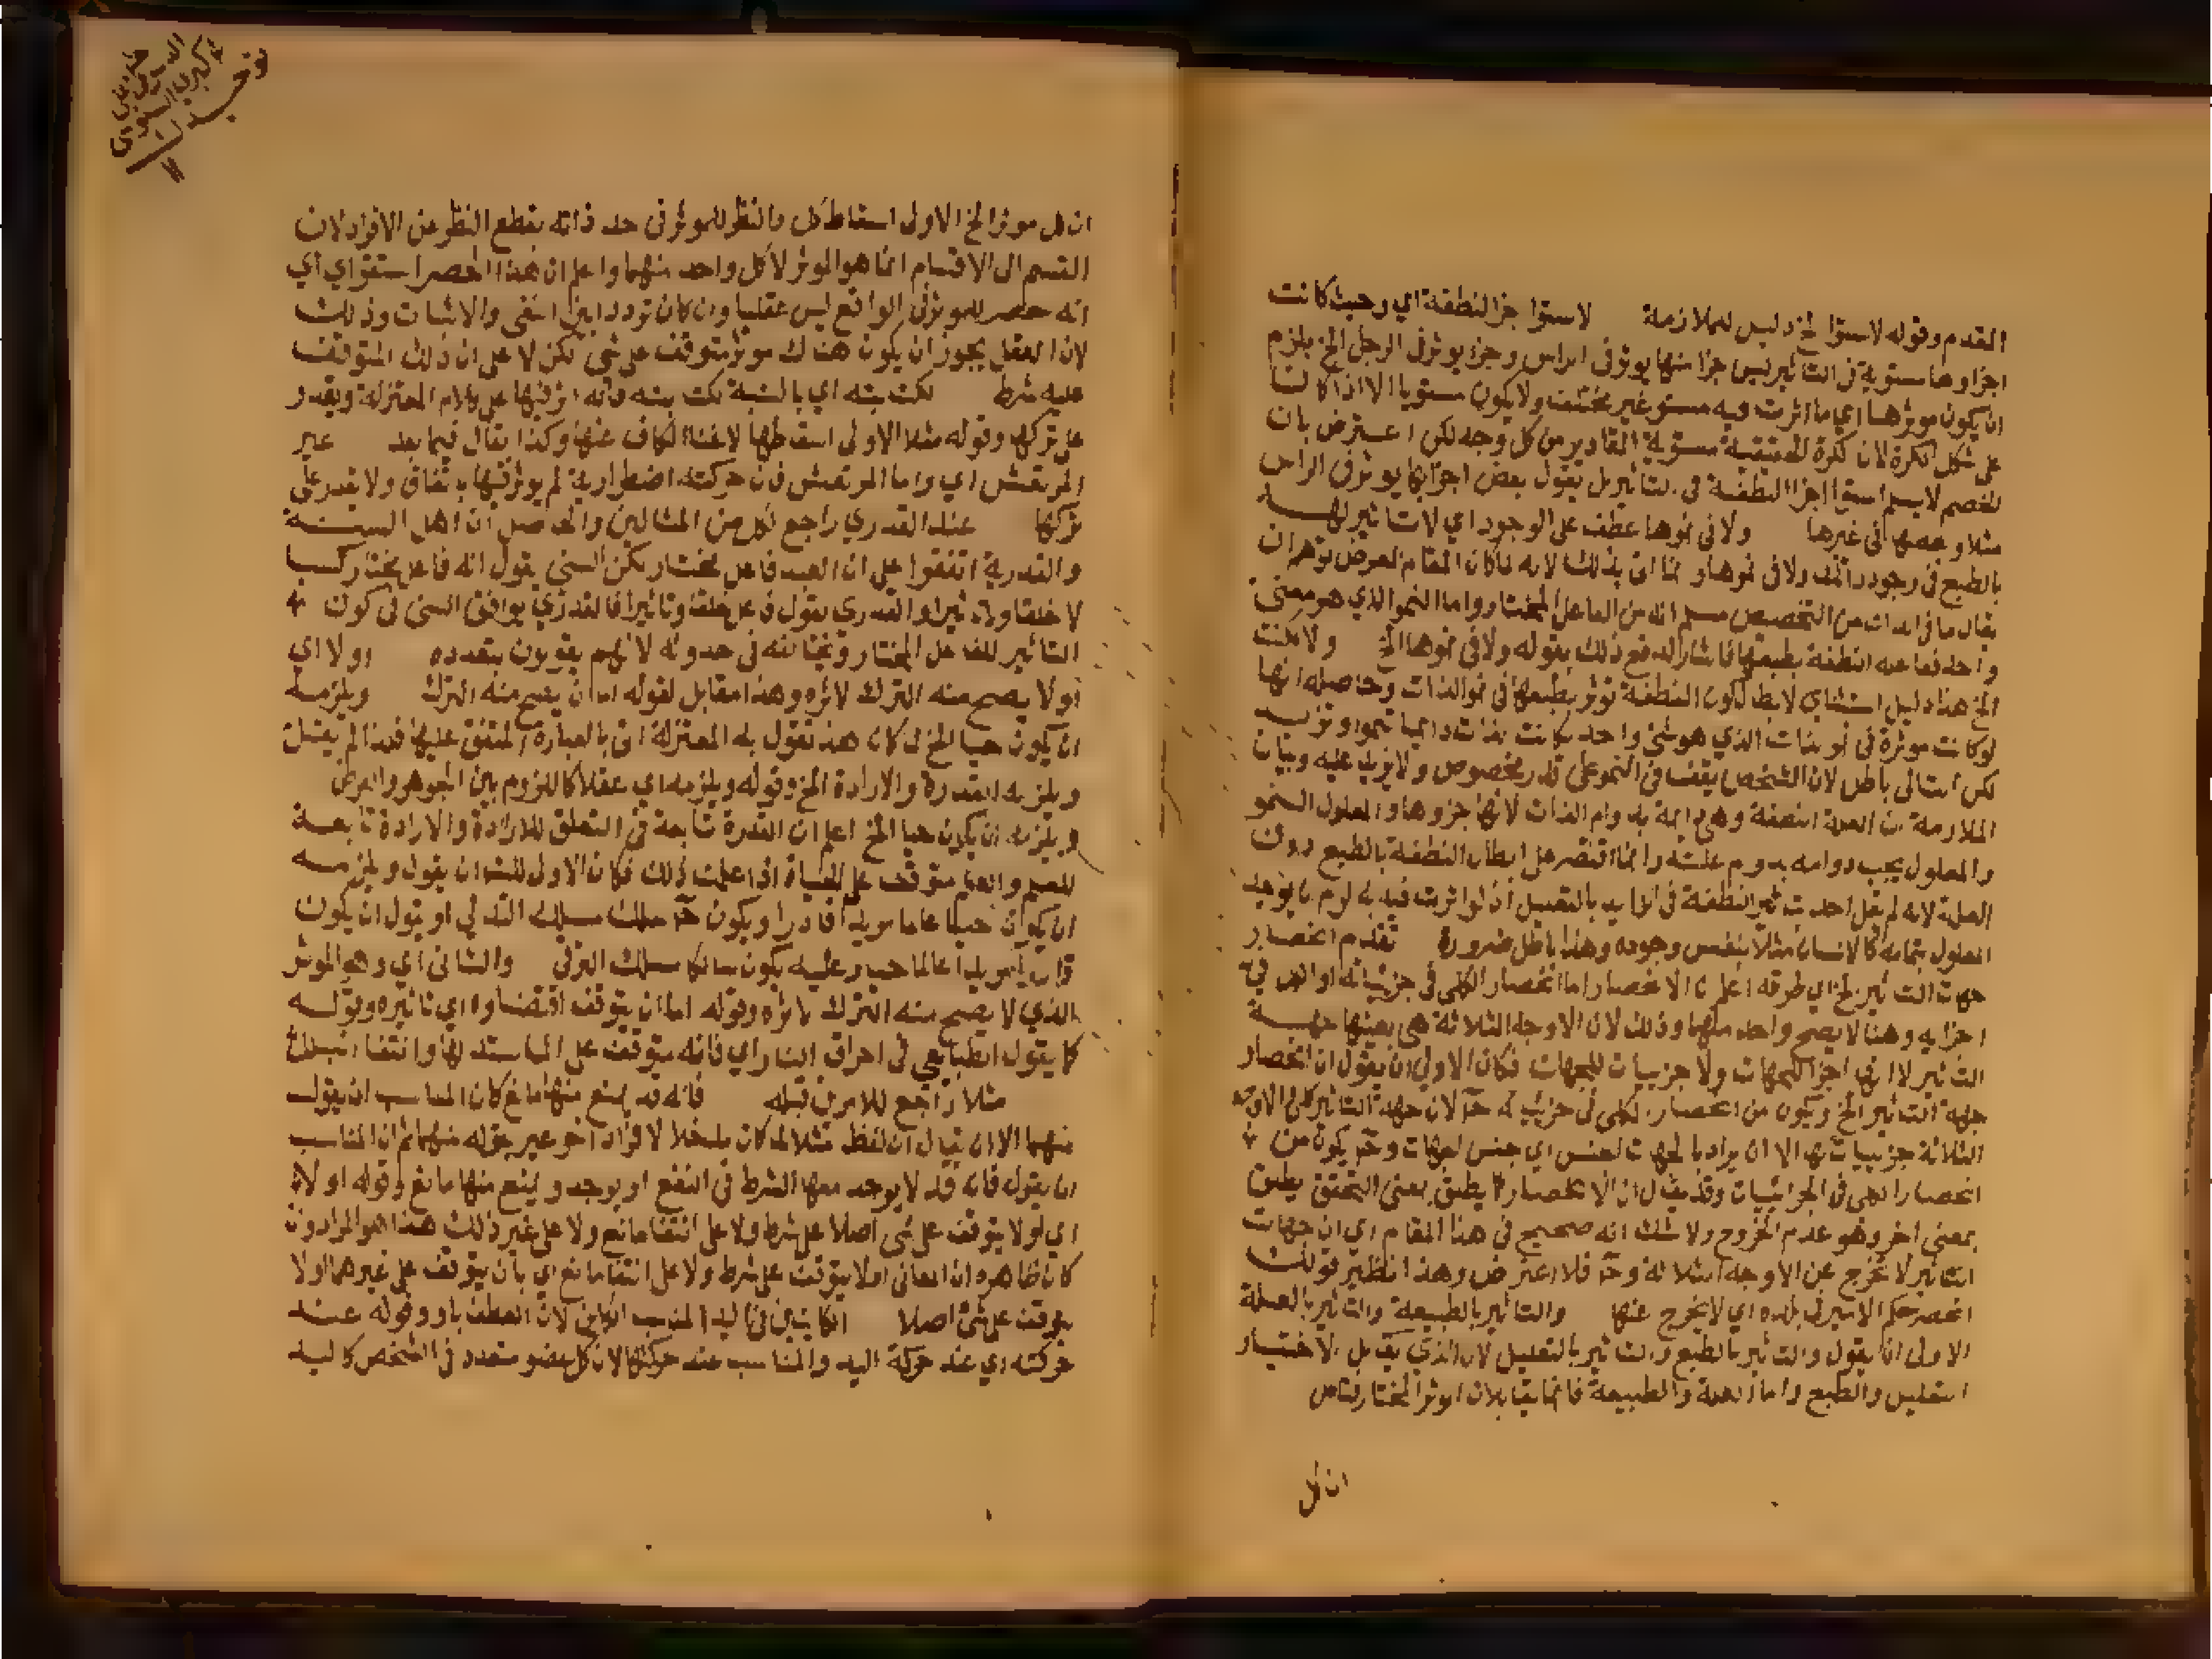 القدم وقوله لاستوا الخ دليل للملازمة لاستوا جزا النطفة اي وحيث كانت
اجزاوها مستوية في التاثير ليس جزا منها يوثر في الراس وجزا يوثر في الرجل الخ يلزم
ان يكون موثرها اي ما اثرت فيه مستو غير مختلف ولا يكون مستويا الا اذا كان
على شكل الكرة لان الكرة الحقيقية مستوية المقادير من كل وجه لكن اعترض بان
الخصم لا يسلم استوا اجزا النطفة في التاثير بل يقول بعض اجزايها يوثر في الراس
مثلا وبعضها في غيرها ولا في نموها عطف على الوجود اي لا تاثير لها
بالطبع في وجود الذات ولا في نموها وانما اتى بذلك لانه لما كان المقام لعرض توهم ان
يقال ما في الذات من التخصيص مسلم انه من الفاعل المختار واما النمو الذي هو معنى
واحد فما عليه النطفة بطبعها فاشار لدفع ذلك بقوله ولا في نموها الخ ولا كانت
الخ هذا دليل استثناي لابطال كون النطفة توثر بطبعها في نمو الذات وحاصله انها
لو كانت موثرة في نمو الذات الذي هو شي واحد لكانت الذات دايما تنمو وتزيد
لكن التالي باطل لان الشخص يقف في النمو على قدر مخصوص ولا يزيد عليه وبيان
الملازمة ان العلة النطفة وهي دايمة بدوام الذات لانها جزوها والمعلول النمو
والمعلول يجب دوامه بدوام علته وانما اقتصر على ابطال النطفة بالطبع دون
العلة لانه لم يقل احد بتاثير النطفة في الزايد بالتعليل اذ لو اثرت فيه به لزم ان يوجد
المعلول بتمامه كالانسان مثلا بنفس وجوده وهذا باطل ضرورة تقدم انحصار
جهات التاثير الخ اي طرقه اعلم ان الانحصار اما انحصار الكلي في جزئياته او الكل في
اجزايه وهنا لا يصح واحد منهما وذلك لان الاوجه الثلاثة هي بعينها جهة
التاثير لا انها اجزا للجهات ولا جزييات للجهات فكان الاولى ان يقول انحصار
جهة التاثير الخ ويكون من انحصار الكلي في جزئياته ح لان جهة التاثير كلي الاوجه
الثلاثة جزيياتها الا ان يراد بالجهات الجنس اي جنس الجهات وح يكون من
انحصار الكلي في الجزئيات وقد يقال ان الانحصار كما يطلق بمعنى التحقق يطلق
بمعنى اخر وهو عدم الخروج ولا شك انه صحيح في هذا المقام اي ان جهات
التاثير لا تخرج عن الاوجه الثلاثة وح فلا اعتراض وهذا نظير قولك
انحصر حكم الامير في بلده اي لا يخرج عنها والتاثير بالطبيعة والتاثير بالعلة
الاولى ان يقول والتاثير بالطبع والتاثير بالتعليل لان الذي يقابل الاختيار
التعليل والطبع واما العلة والطبيعة فانما يقابلان الموثر المختار تامل
ان كل
ان كل موثر الخ الاولى اسقاط كل والنظر للموثر في حد ذاته بقطع النظر عن الافراد لان
القسم الى الاقسام انما هو الموثر لا كل واحد منهما واعلم ان هذا الحصر استقراي اي
انه حصر للموثر في الواقع ليس عقليا وان كان تردد ابين النفي والاثبات وذلك
لان العقل يجوز ان يكون هناك موثر متوقف على شي لكن لا على ان ذلك المتوقف
عليه شرط لكتبته اي بالنسبة لكتبته فانه اثر فيها على كلام المعتزلة ويقدر
على تركها وقوله مثلا الاولى اسقاطها لاغناء الكاف عنها وكذا يقال فيما بعد غير
المرتعش اي واما المرتعش فان حركته اضطرارية لم يوثر فيها باتفاق ولا يقدر على
تركها عند القدري راجع لكل من المثالين والحاصل ان اهل السنة
والقدرية اتفقوا على ان العبد فاعل مختار لكن السني يقول انه فاعل مختار كسبا
لا خلقا ولا تاثيرا والقدري يقول فاعل خلقا وتاثيرا فالقدري يوافق السني في كون
التاثير للفاعل المختار ويخالفه في حدوثه لانهم يقولون بتعدده اولا اي
اولا يصح منه الترك لاثره وهذا مقابل لقوله اما ان يصح منه الترك ويلزمه
ان يكون حيا الخ لما كان هذا تقول به المعتزلة اتى بالعبارة المتفق عليها فلذا لم يقل
ويلزمه القدرة والارادة الخ وقوله ويلزمه اي عقلا كاللزوم بين الجوهر والعرض
ويلزمه ان يكون حيا الخ اعلم ان القدرة تابعة في التعلق للارادة والارادة تابعة
للعلم والعلم متوقف على الحياة اذا علمت ذلك فكان الاولى للش ان يقول ويلزمه
ان يكون حيا عالما مريدا قادرا ويكون ح سلك مسلك التدلي او يقول ان يكون
قادرا مريدا عالما حيا وعليه يكون سالكا مسلك الترقي والثاني اي وهو الموثر
الذي لا يصح منه الترك لاثره وقوله اما ان يتوقف اقتضاوه اي تاثيره وقوله
كما يقول الطبائعي في احراق النار اي فانه يتوقف على المماسة لها وانتفا البلل
مثلا راجع للامرين قبله فانه قد يمنع منها مانع كان المناسب ان يقول
منهما الا ان يقال ان لفظ مثلا لما كان مدخلا لافراد اخر عبر بقوله منها ثم ان المناسب
ان يقول فانه قد لا يوجد معها الشرط في النفع او يوجد ويمنع منها مانع وقوله او لا
اي او لا يتوقف على شي اصلا على شرط ولا على انتفا مانع ولا على غير ذلك هذا هو المراد وان
كان ظاهره ان المعاني اولا يتوقف على شرط ولا على انتفا مانع اي بان يتوقف على غيرهما اولا
يتوقف على شي اصلا الكاينين في اليد المناسب الكاين لان العطف باو وقوله عند
حركته اي عند حركة اليد والمناسب عند حركتها لان كل عضو متعدد في الشخص كاليد